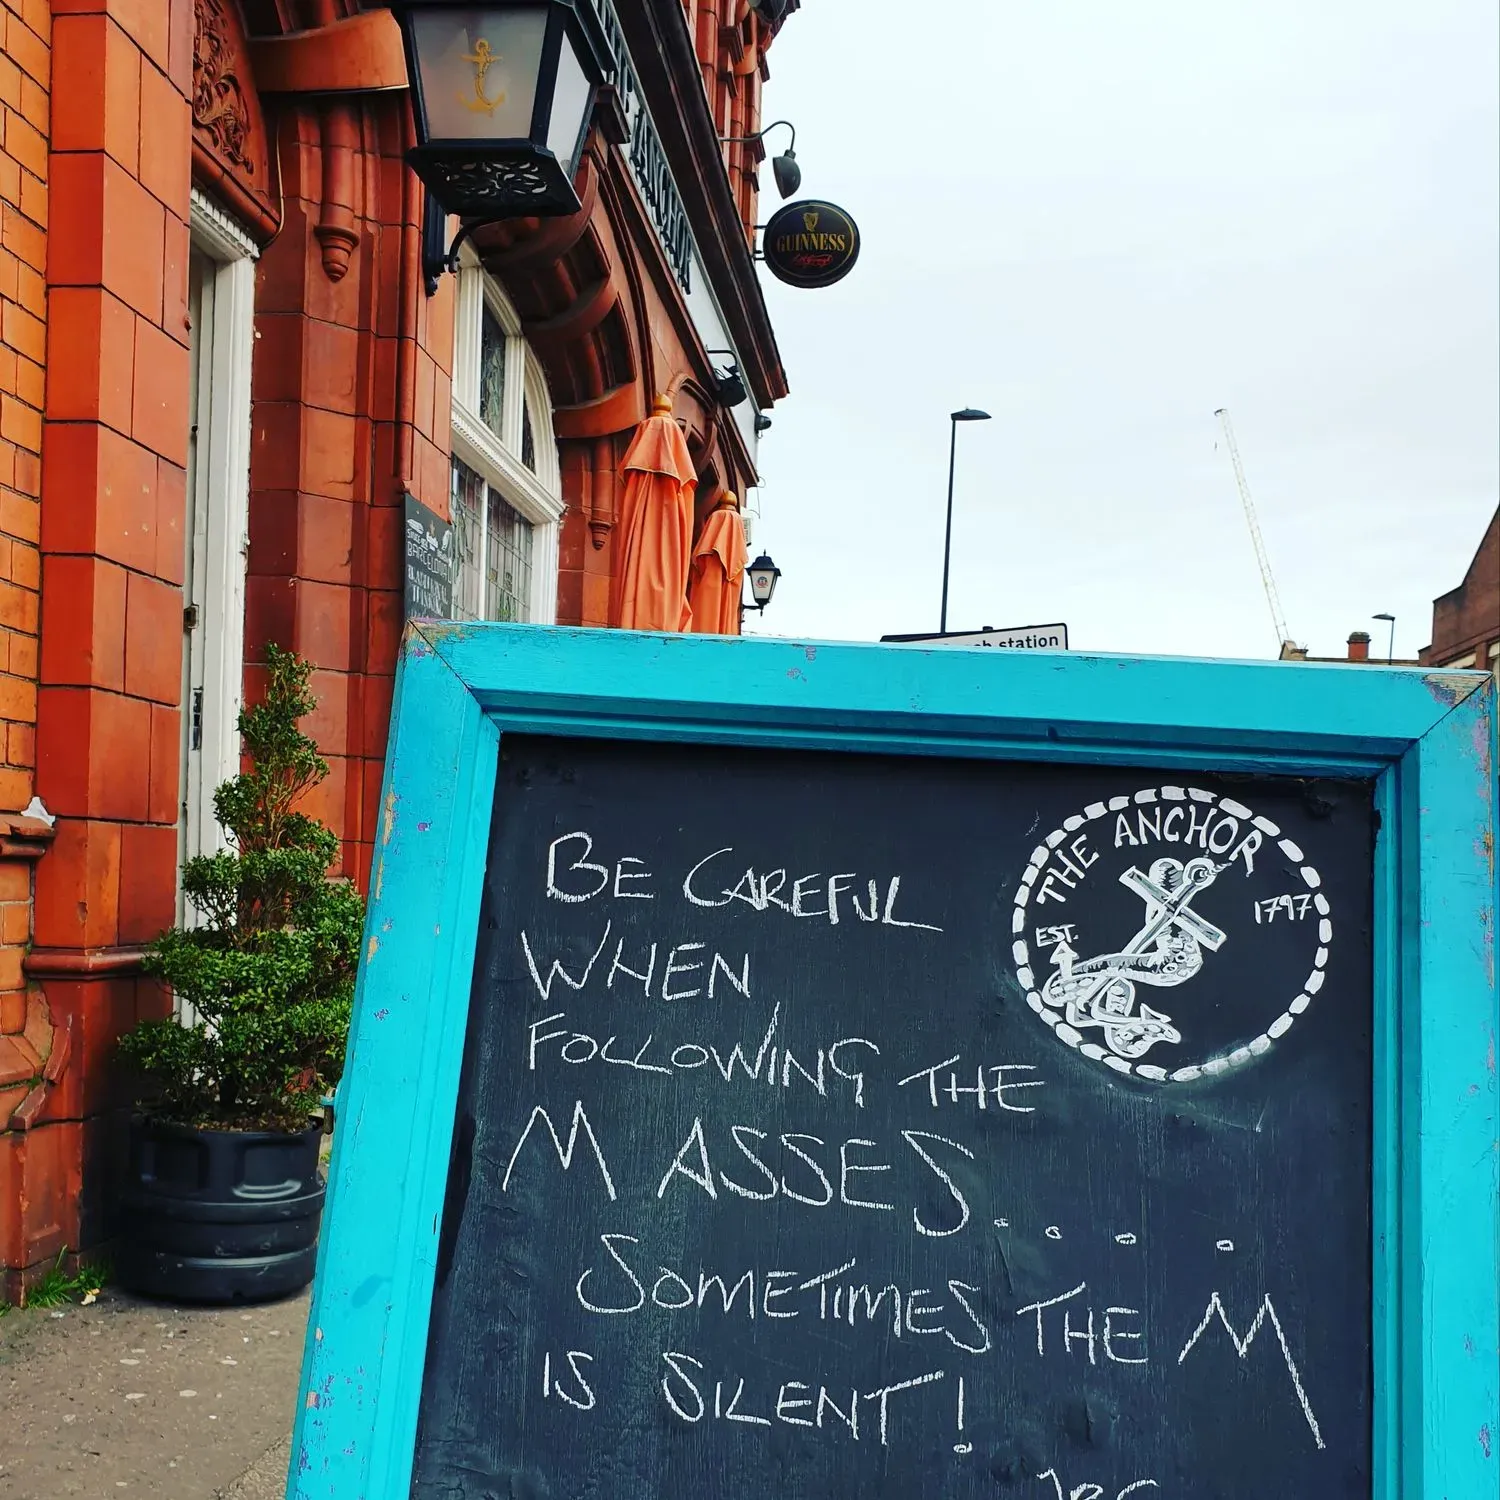 THE ANCHOR
GUINNESS
BARCELONA
station
THE ANCHOR
EST.
1797
BE CAREFUL
WHEN
FOLLOWING THE
MASSES....
SOMETIMES THE M
IS SILENT!